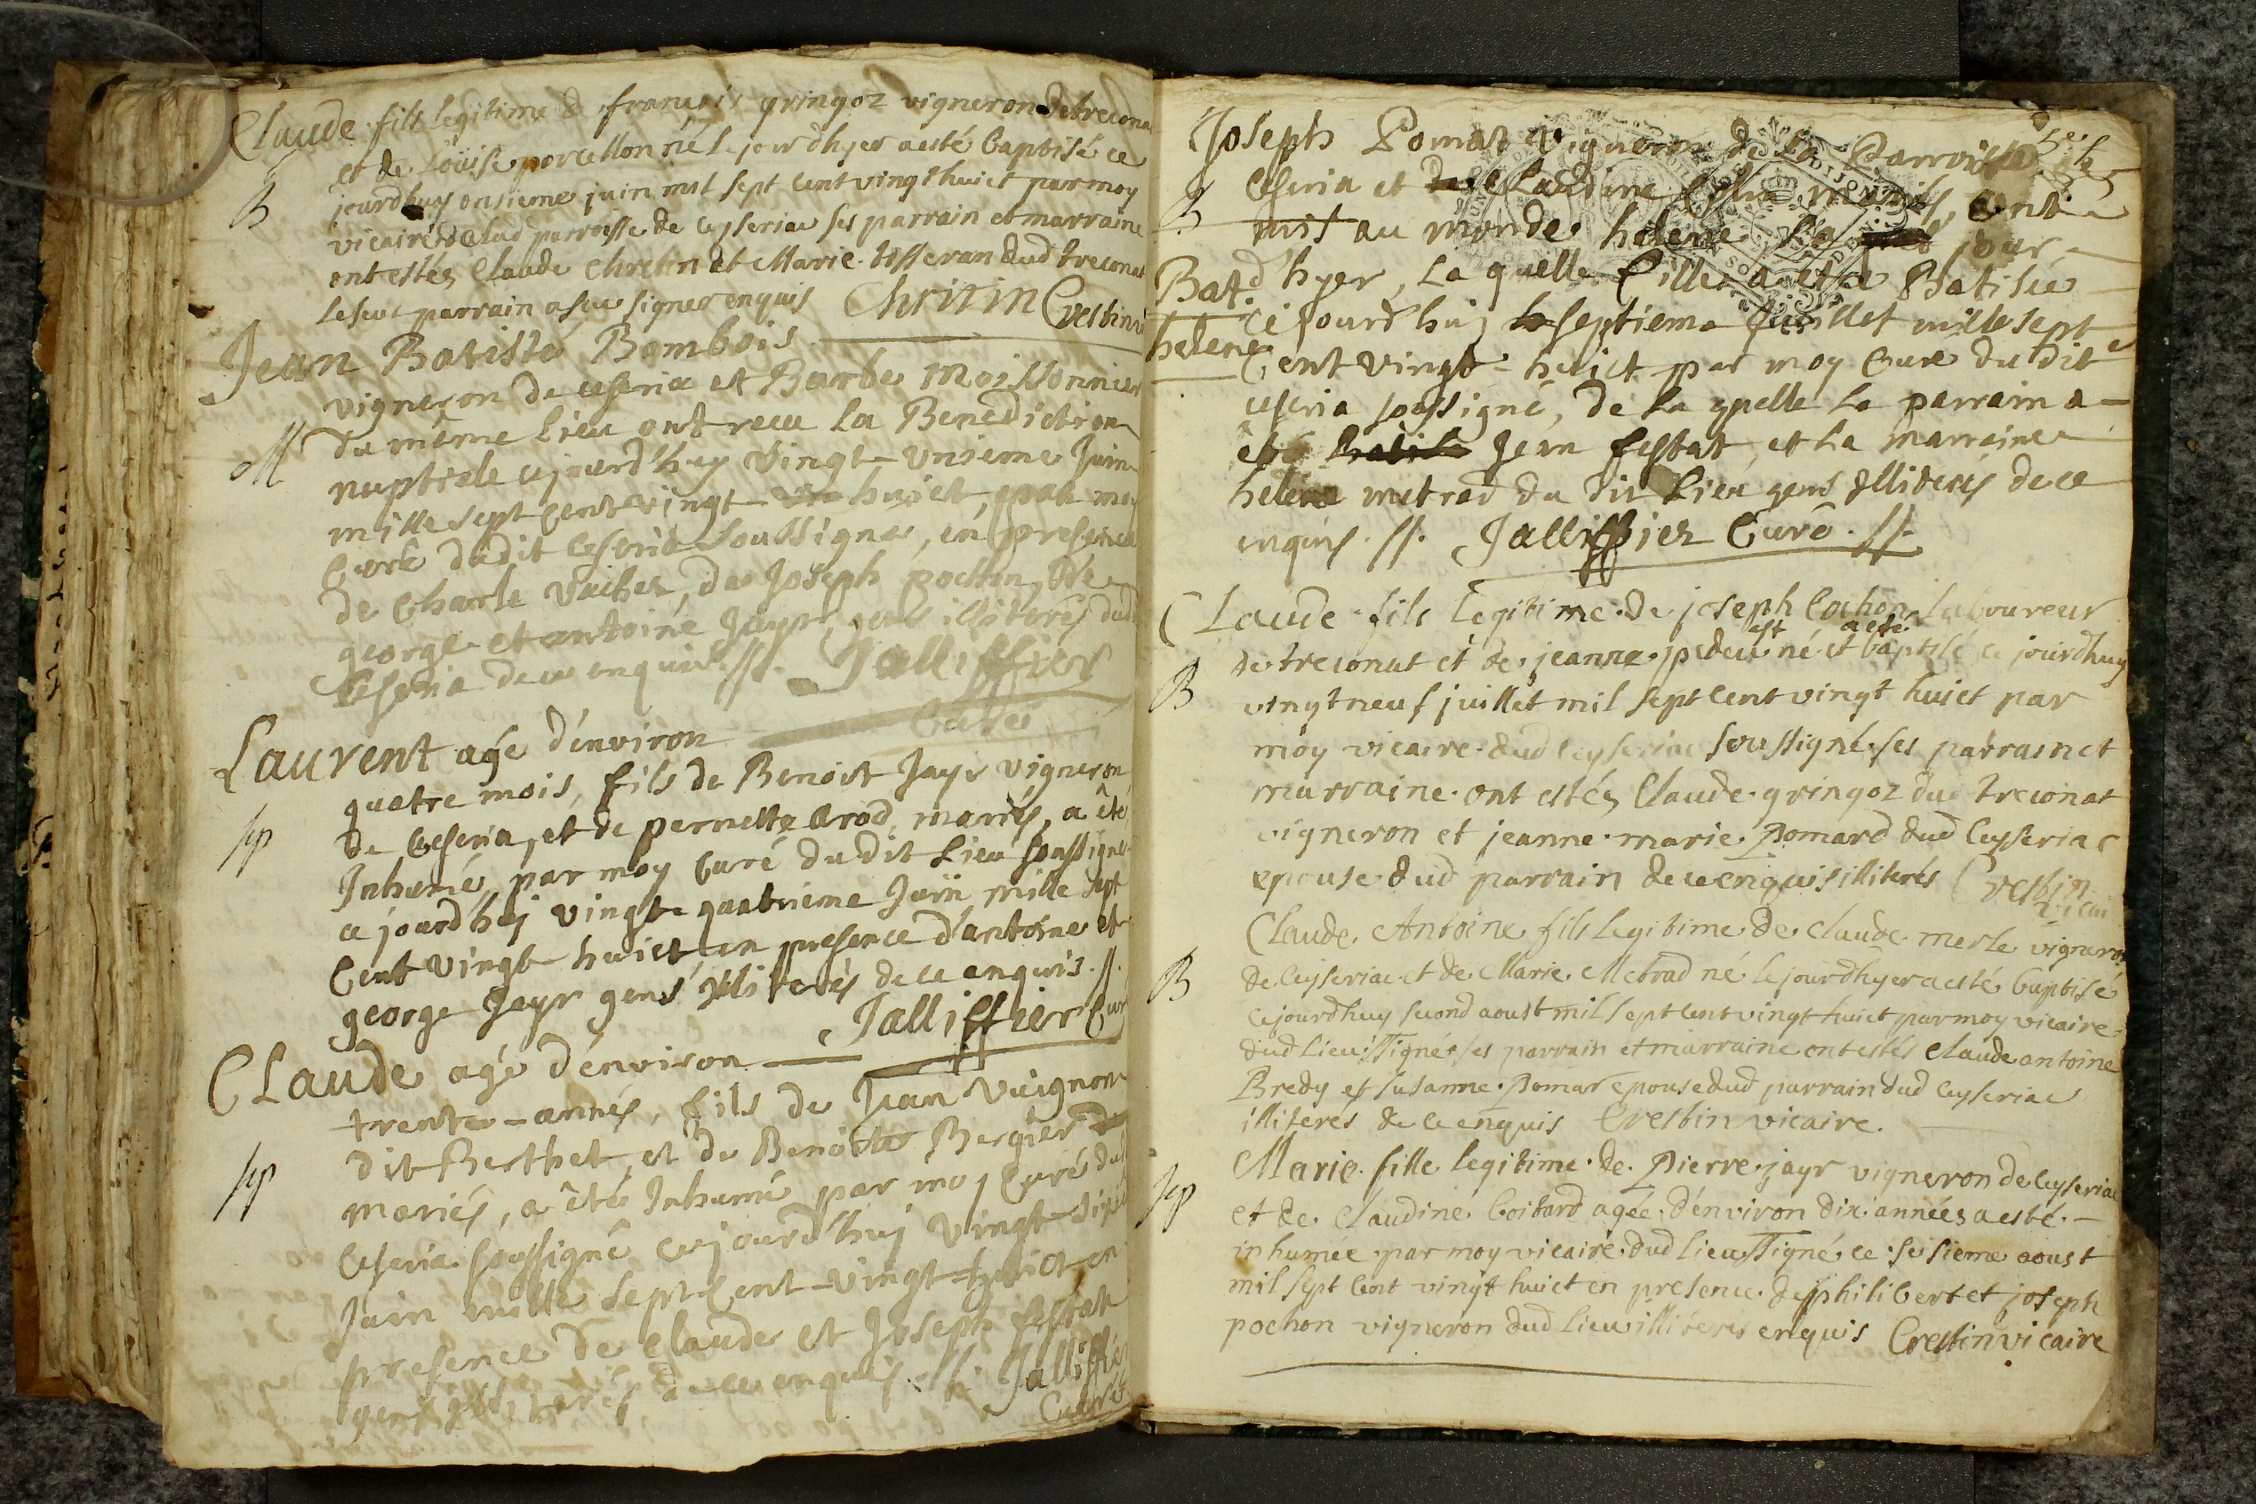 Claude fils legitime d françois gringoz vigneron de treconat
et de Loüise porcellon né le jourdhyer aesté baptisé ce
B
jourdhuy onsieme juin mil sept cent vingt huict par moy
vicaire dud parroisse de ceyseriac ses parrain et marraine
ont estés Claude Chretin et Marie tisseran dud treconat
le seul parrain a sceu signer enquis Chritin Crestin vi
Jean Batiste Bombois
vigneron de ceseria et Barbe Moissonnier
M
du même lieu ont receu la Benediction
nuptiale cejourd'huy vingt-unieme Juin
mille sept cent vingt huict, par moy
Curé dudit Ceseria soussigné, en presence
de Charle Vuiber, de Joseph pochon, de
george et antoine Jayr, gens illiterés dudit
Ceseria de ce enquis. //. Jalliffier
Curé
Laurent agé d'environ
quatre mois, fils de Benoist Jayr vigneron
sep
de Ceseria, et de pernette Brod mariés, a été
Inhumé par moy Curé du dit Lieu soussigné
cejourd'huj vingt quatrieme Juin mille sept
Cent vingt huict, en presence d'antoine et
george Jayr gens illiterés de ce enquis. //.
Jalliffier Curé
CLaude agé d'environ
trente-annés, fils de Jean Vuignon
sep
dit Berthet, et de Benoite Bergier
mariés, a êté Inhumé par moj Curé dud
Ceseria soussigné cejourd'huj vingt-sixié
Juin mille sept Cent-vingt-huict en
presence de Claude et Joseph festat
gens illiterés de ce enquis. //. Jalliffier
Curé
Joseph Pomat Vigneron de la Parroisse de
B
Ceseria et Claudine mariés, ont
mis au monde helene, le jour
Bat. d'hyer, la quelle fille a eté Batisée
helene
Ce jourd'huij septieme Juillet mille sept
Cent vingt-huict par moy Curé du dit
ceseria soussigné, de la quelle le parrain a
êté Jean festat, et la marraine
helene metrad du dit Lieu gens illiterés de ce
enquis. //. Jalliffier Curé. //.
Claude fils legitime de joseph Cochon laboureur
est aeté
de treconat et de jeanne né et baptisé ce jourdhuy
B
vingtneuf juillet mil sept cent vingt huict par
moy vicaire dud ceyseriac soussigné ses parrain et
marraine ont estés Claude gringoz dud treconat
vigneron et jeanne marie Pomard dud Ceyseriac
epouse dud parrain de ce enquis illiterés Crestin
vicai
Claude Antoine fils legitime de claude merle vigneron
B
de Ceyseriac et de Marie Metrad né le jourdhyer aesté baptisé
cejourdhuy second aoust mil sept cent vingt huict par moy vicaire
dud Lieu ssigné ses parrain et marraine ont estés Claude antoine
Bredy et Susanne Pomar epouse dud parrain dud Ceyseriac
illiteres de ce enquis Crestin vicaire.
Marie fille legitime de Pierre jayr vigneron de Ceyseriac
sep
et de Claudine Coitard agée d'environ dix années aesté
inhumée par moy vicaire dud Lieu ssigné ce sesieme aoust
mil sept Cent vingt huict en presence de philibert et joseph
pochon vigneron dud Lieu illiteres enquis Crestin vicaire